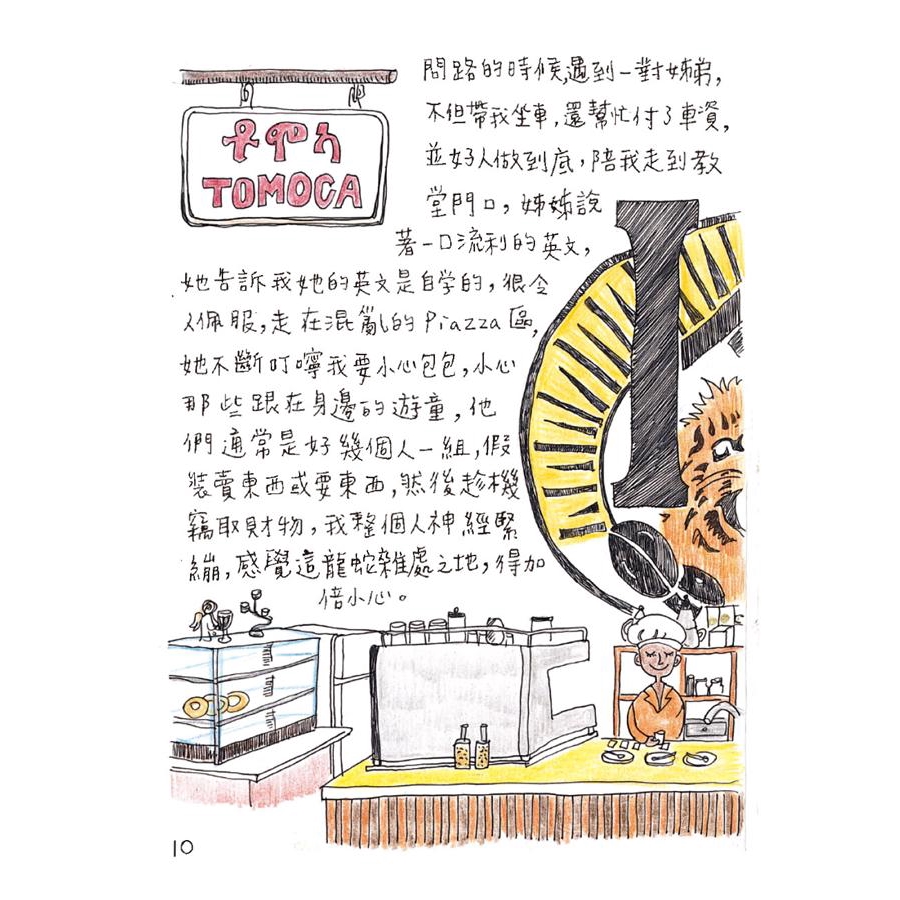 ቶሞካ
TOMOCA
問路的時候,遇到一對姊弟,
不但帶我坐車,還幫忙付了車資,
並好人做到底,陪我走到教
堂門口,姊姊說
著一口流利的英文,
她告訴我她的英文是自学的,很令
人佩服,走在混亂的Piazza區,
她不斷叮嚀我要小心包包,小心
那些跟在身邊的遊童,他
們通常是好幾個人一組,假
裝賣東西或要東西,然後趁機
竊取財物,我整個人神經緊
繃,感覺這龍蛇雜處之地,得加
倍小心。
10